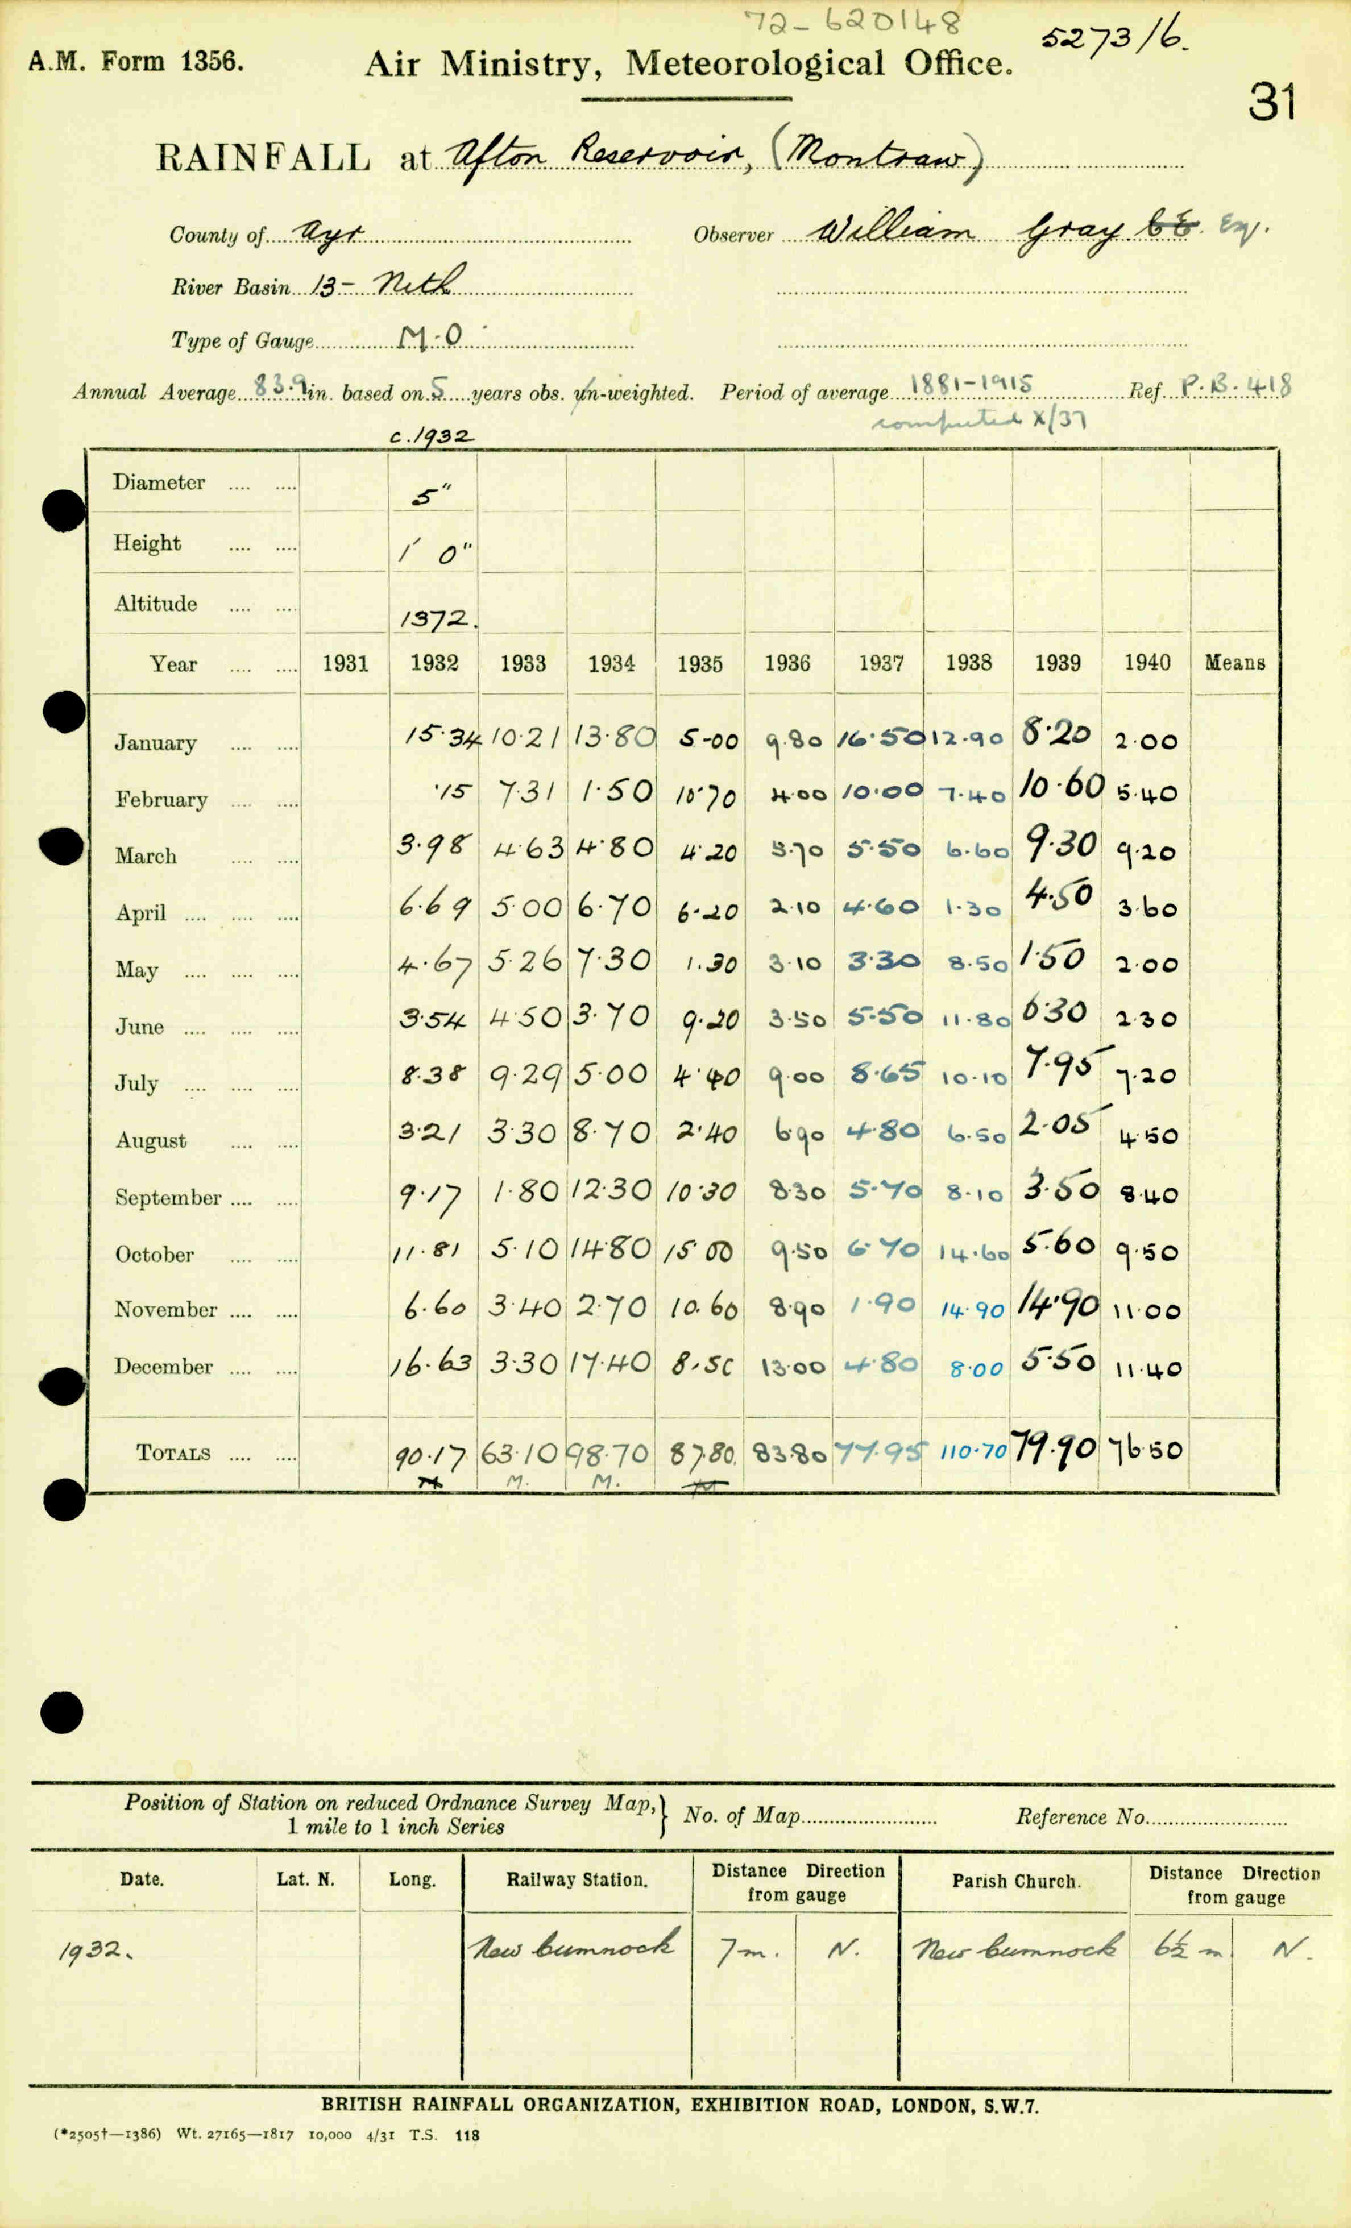 72-620148
5273/6.
A.M. Form 1356. Air Ministry, Meteorological Office.
31
RAINFALL at Afton Reservoir, (Montraw)
County of Ayr Observer William Gray C.E. Esq.
River Basin 13 - Nith
Type of Gauge M.O
Annual Average 83.9 in. based on 5 years obs. un-weighted. Period of average 1881-1915 Ref. P.B. 418
computed X/37
c.1932
Diameter .... .... 5"
Height .... .... 1' 0"
Altitude .... .... 1372.
Year .... .... 1931 1932 1933 1934 1935 1936 1937 1938 1939 1940 Means
January .... .... 15.34 10.21 13.80 5-00 9.80 16.50 12.90 8.20 2.00
February .... .... .15 7.31 1.50 10.70 4.00 10.00 7.40 10.60 5.40
March .... .... 3.98 4.63 4.80 4.20 5.70 5.50 6.60 9.30 9.20
April .... .... .... 6.69 5.00 6.70 6.20 2.10 4.60 1.30 4.50 3.60
May .... .... .... 4.67 5.26 7.30 1.30 3.10 3.30 8.50 1.50 2.00
June .... .... .... 3.54 4.50 3.70 9.20 3.50 5.50 11.80 6.30 2.30
July .... .... .... 8.38 9.29 5.00 4.40 9.00 8.65 10.10 7.95 7.20
August .... .... 3.21 3.30 8.70 2.40 6.90 4.80 6.50 2.05 4.50
September .... .... 9.17 1.80 12.30 10.30 8.30 5.70 8.10 3.50 8.40
October .... .... 11.81 5.10 14.80 15.00 9.50 6.70 14.60 5.60 9.50
November .... .... 6.60 3.40 2.70 10.60 8.90 1.90 14.90 14.90 11.00
December .... .... 16.63 3.30 17.40 8.50 13.00 4.80 8.00 5.50 11.40
TOTALS .... .... 90.17 63.10 98.70 87.80. 83.80 77.95 110.70 79.90 76.50
M M. M. M
Position of Station on reduced Ordnance Survey Map,} No. of Map Reference No.
1 mile to 1 inch Series
Date. Lat. N. Long. Railway Station. Distance Direction Parish Church. Distance Direction
from gauge from gauge
1932. New Cumnock 7 m. N. New Cumnock 6½ m N.
BRITISH RAINFALL ORGANIZATION, EXHIBITION ROAD, LONDON, S.W.7.
(*2505†—1386) Wt. 27165—1817 10,000 4/31 T.S. 118